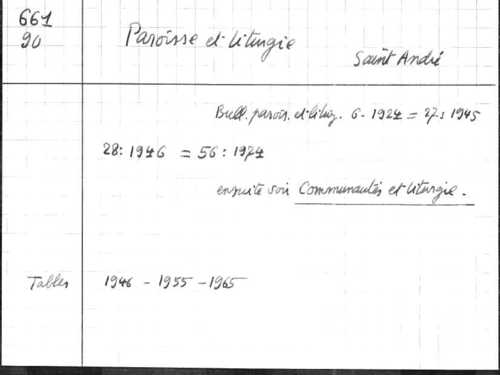 661
90
Paroisse et liturgie
Saint André
Bull. parois. et liturg. 6. 1924 = 27: 1945
28: 1946 = 56: 1974
ensuite voir Communautés et liturgie.
Tables 1946 - 1955 - 1965